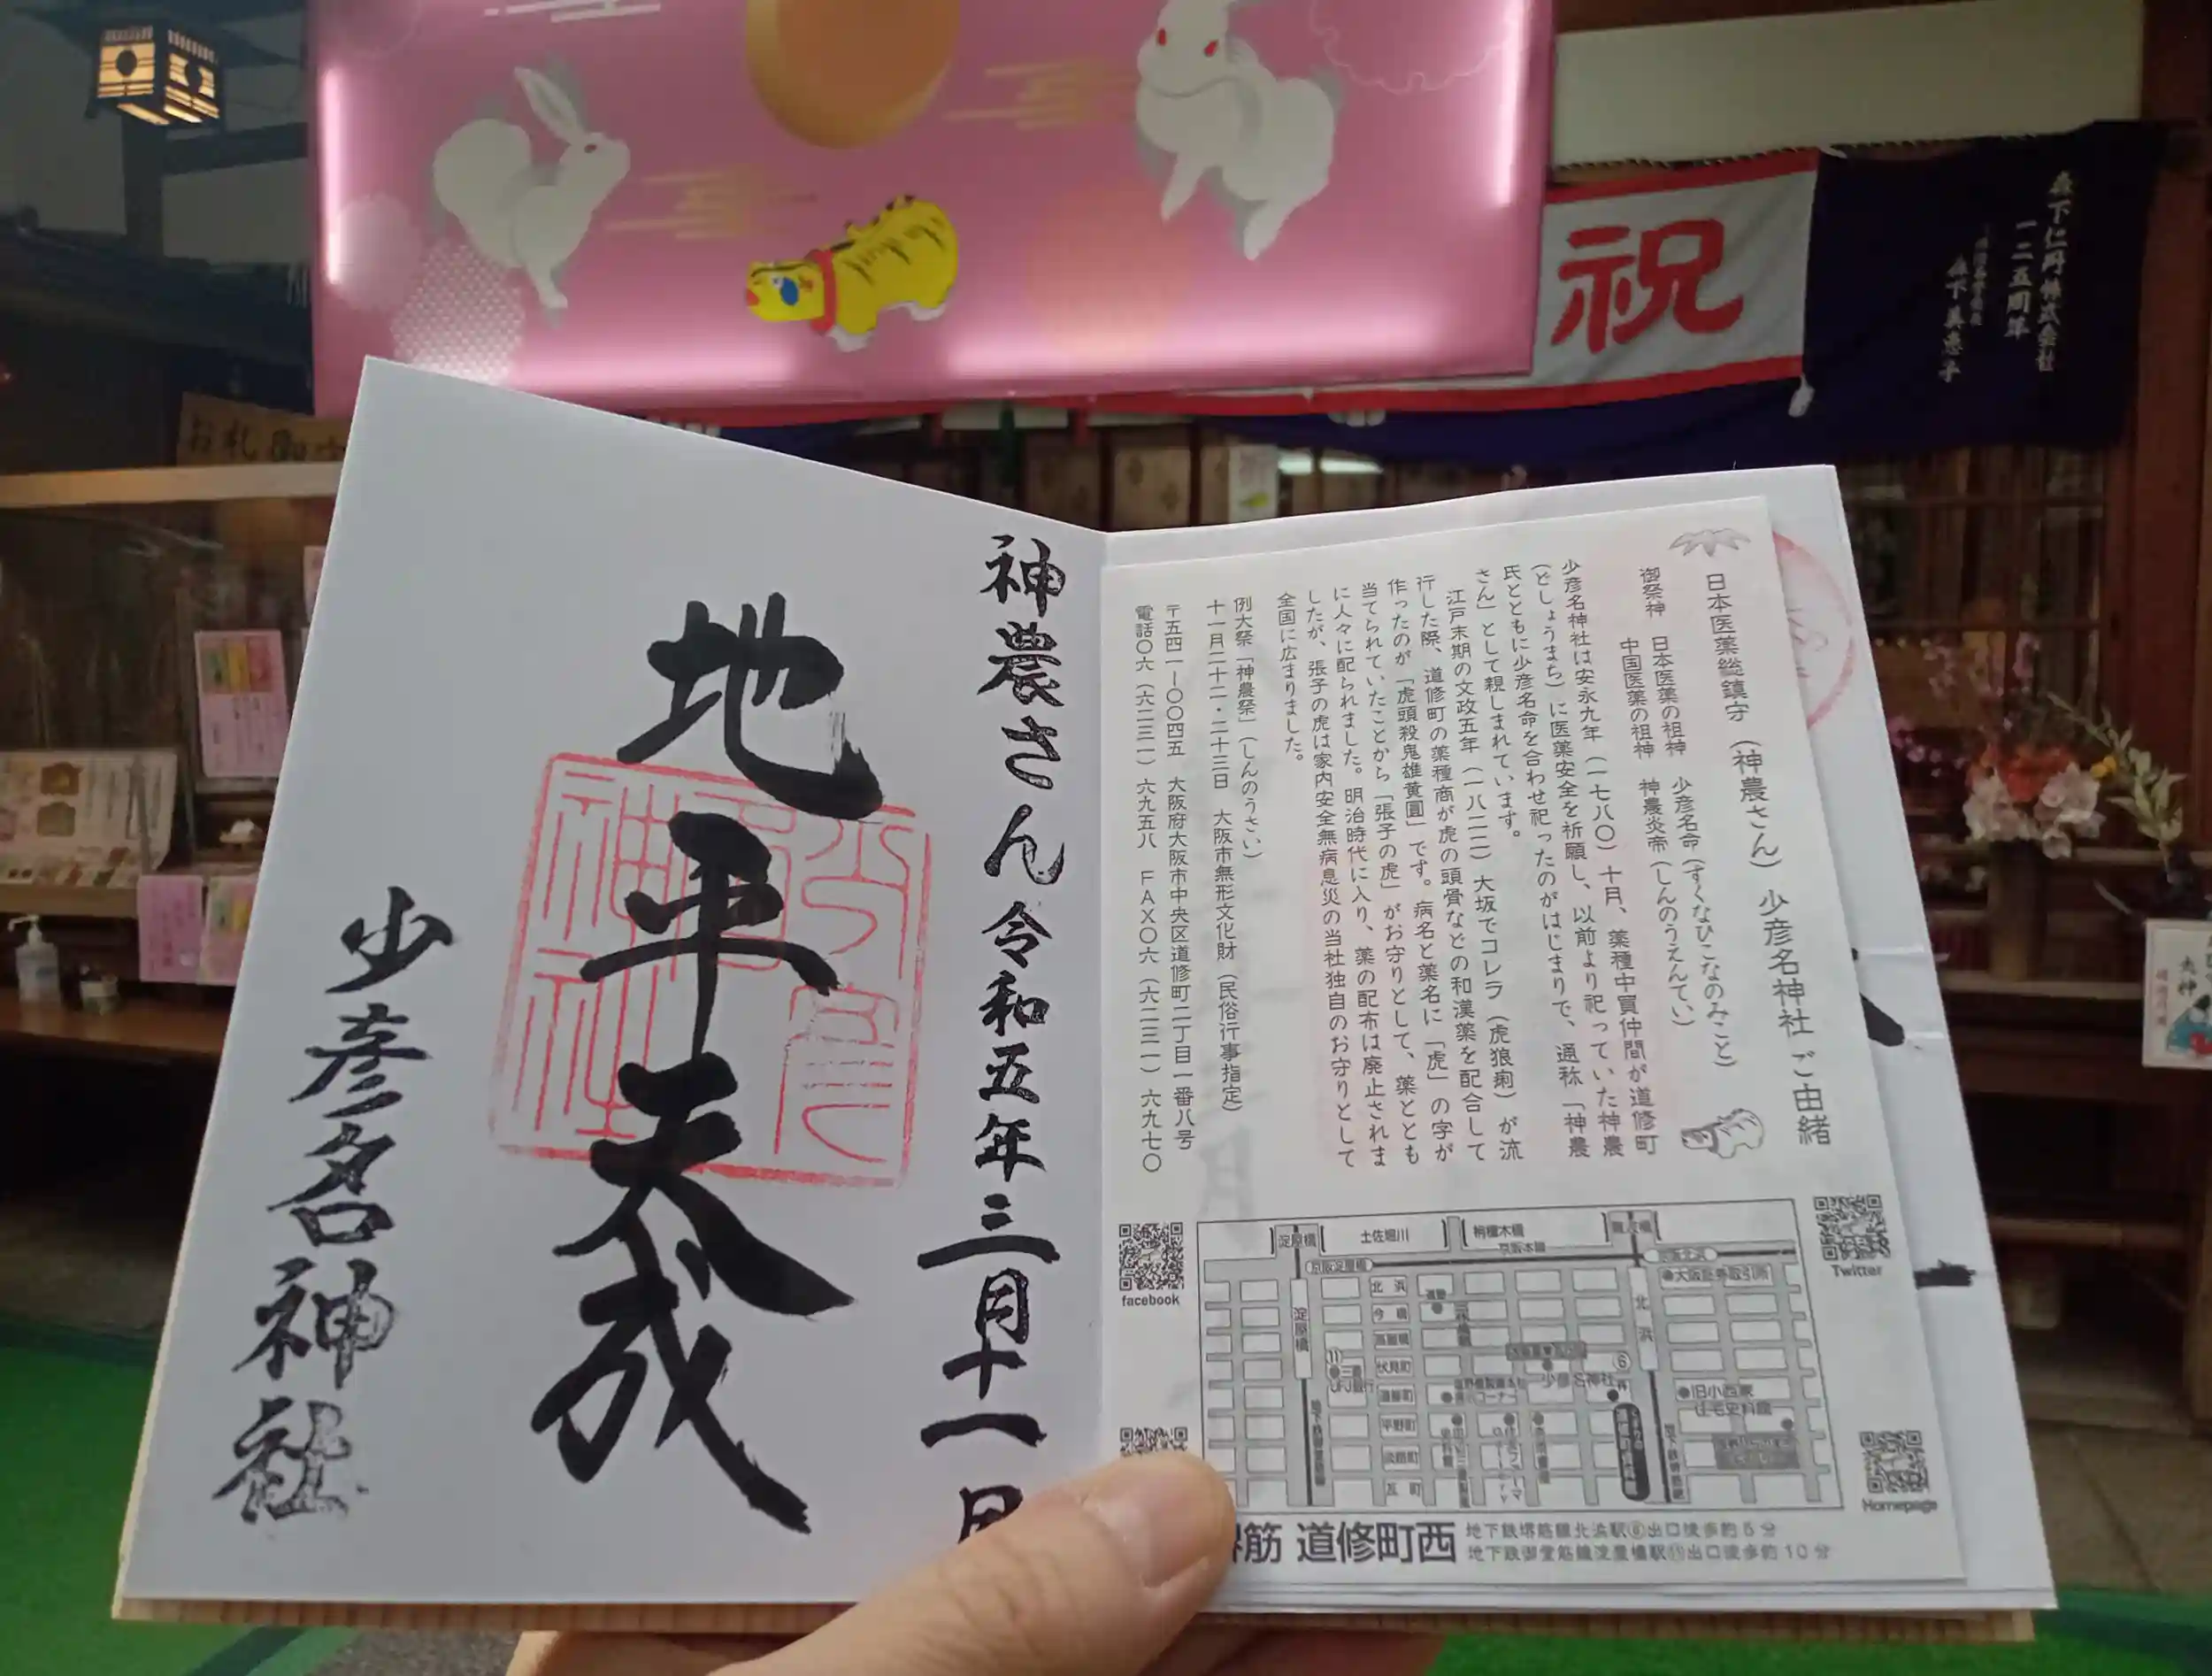 祝
森下仁丹株式会社
一二五周年
森下美惠子
お札
神農さん 令和五年三月十一日
地平天成
少彦名神社
日本医薬総鎮守(神農さん)少彦名神社 ご由緒
御祭神 日本医薬の祖神 少彦名命(すくなひこなのみこと)
中国医薬の祖神 神農炎帝(しんのうえんてい)
少彦名神社は安永九年(一七八〇)十月、薬種中買仲間が道修町
(どしょうまち)に医薬安全を祈願し、以前より祀っていた神農
氏とともに少彦名命を合わせ祀ったのがはじまりで、通称「神農
さん」として親しまれています。
江戸末期の文政五年(一八二二)大坂でコレラ(虎狼痢)が流
行した際、道修町の薬種商が虎の頭骨などの和漢薬を配合して
作ったのが「虎頭殺鬼雄黄圓」です。病名と薬名に「虎」の字が
当てられていたことから「張子の虎」がお守りとして、薬ととも
に人々に配られました。明治時代に入り、薬の配布は廃止されま
したが、張子の虎は家内安全無病息災の当社独自のお守りとして
全国に広まりました。
例大祭「神農祭」(しんのうさい)
十一月二十二・二十三日 大阪市無形文化財(民俗行事指定)
〒五四一ー〇〇四五 大阪府大阪市中央区道修町二丁目一番八号
電話〇六(六二三一)六九五八 FAX〇六(六二三一)六九七〇
facebook
Twitter
Homepage
淀屋橋
土佐堀川
栴檀木橋
難波橋
京阪本線
京阪淀屋橋
京阪北浜
大阪証券取引所
北浜
今橋
高麗橋
伏見町
道修町
平野町
淡路町
瓦町
淀屋橋
北浜
⑪
三菱
UFJ銀行
⑥
少彦名神社
旧小西家
住宅史料館
筋 道修町西
地下鉄堺筋線北浜駅⑥出口徒歩約5分
地下鉄御堂筋線淀屋橋駅⑪出口徒歩約10分